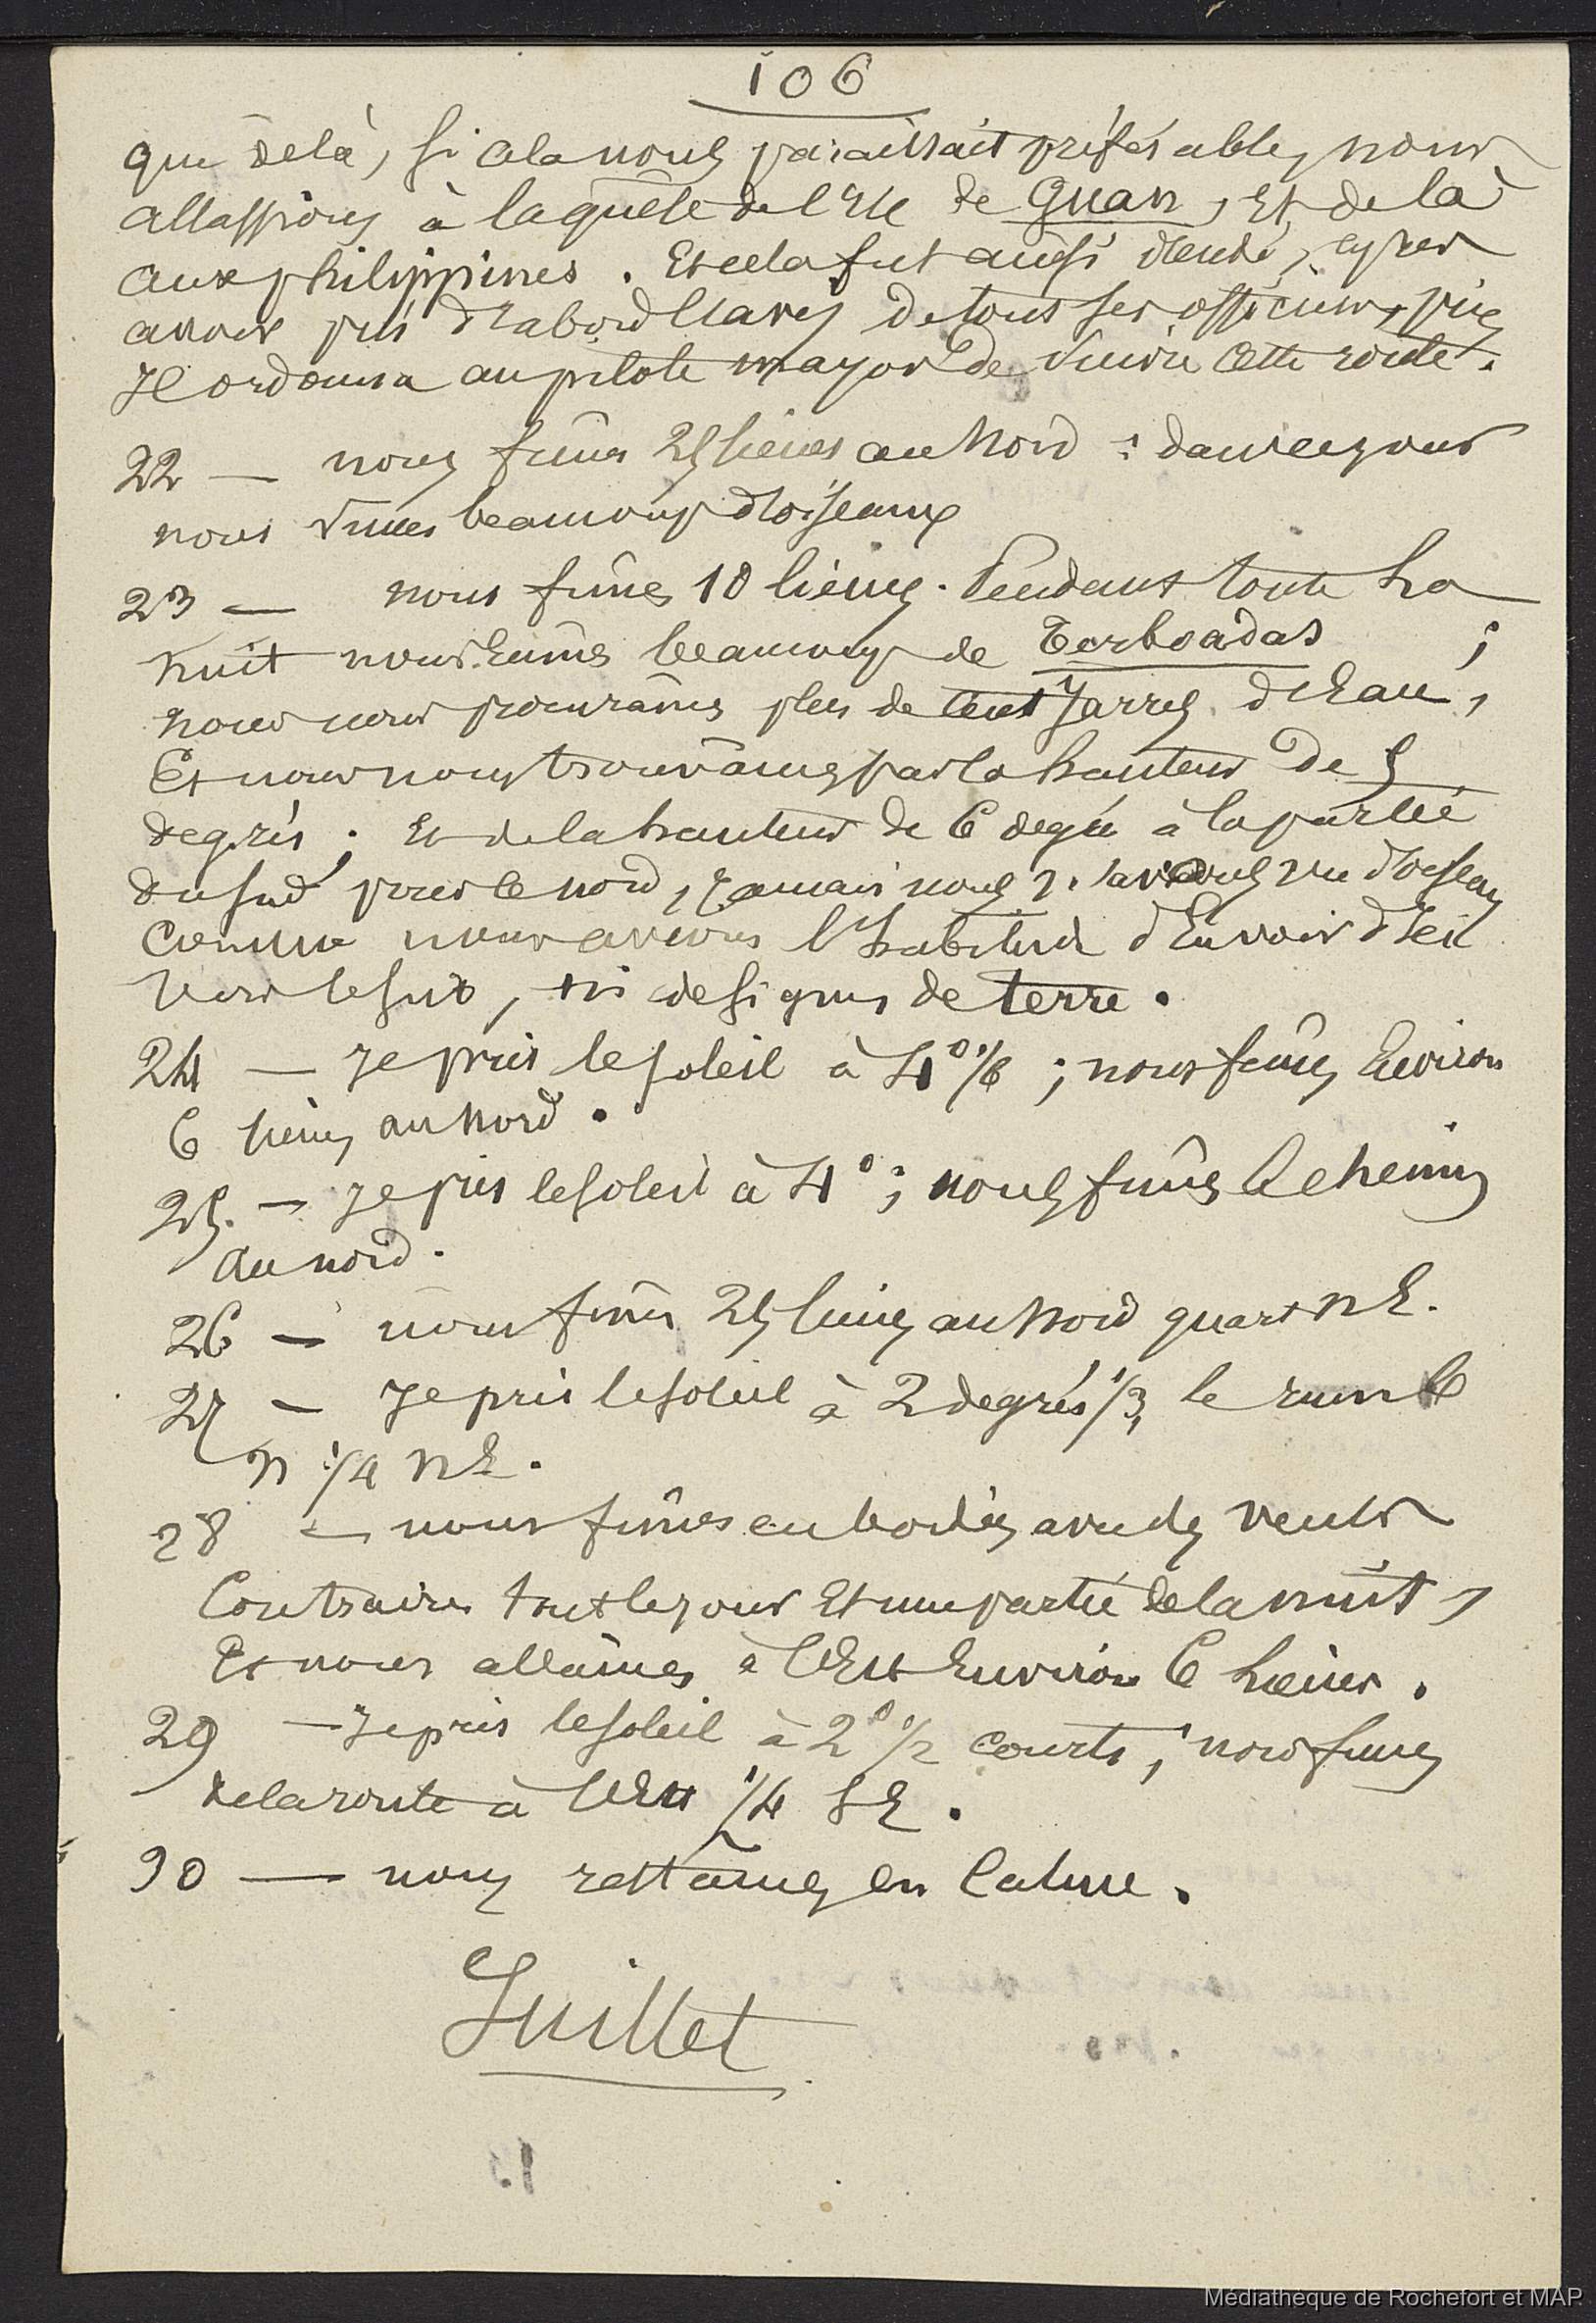 106
que delà, si cela nous paraissait préférable, nous
allassions à la quête de l'Ile de Guan, Et de là
aux philippines. Et cela fut ainsi décidé, après
avoir pris d'abord l'avis de tous ses officiers, puis
Il ordonna au pilote mayor de suivre cette route.
22 — nous fîmes 25 lieues au Nord : dans ce jour
nous vîmes beaucoup d'oiseaux
23 — nous fîmes 10 lieues. Pendant toute la
nuit nous Eûmes beaucoup de Torboadas ;
nous nous procurâmes plus de cent Jarres d'Eau,
Et nous nous trouvâmes par la hauteur de 5
degrés ; Et de la hauteur de 6 degrés à la partie
du sud pour le nord, Jamais nous n'avions vu d'oiseau
comme nous avions l'habitude d'En voir d'ici
vers le sud, ni de signes de terre.
24 — Je pris le soleil à 4° 1/6 ; nous fîmes Environ
6 lieues au Nord.
25. — Je pris le soleil à 4° ; nous fîmes le chemin
au nord.
26 — nous fîmes 25 lieues au Nord quart NE.
27 — Je pris le soleil à 2 degrés 1/3, le rumb
N 1/4 NE.
28 — nous fîmes en bordées avec des vents
Contraires tout le jour Et une partie de la nuit,
Et nous allâmes à l'Est Environ 6 lieues.
29 — Je pris le soleil à 2° 1/2 courts ; nous fîmes
de la route à l'Est 1/4 SE.
30 — nous restâmes en Calme.
Juillet
Médiathèque de Rochefort et MAP